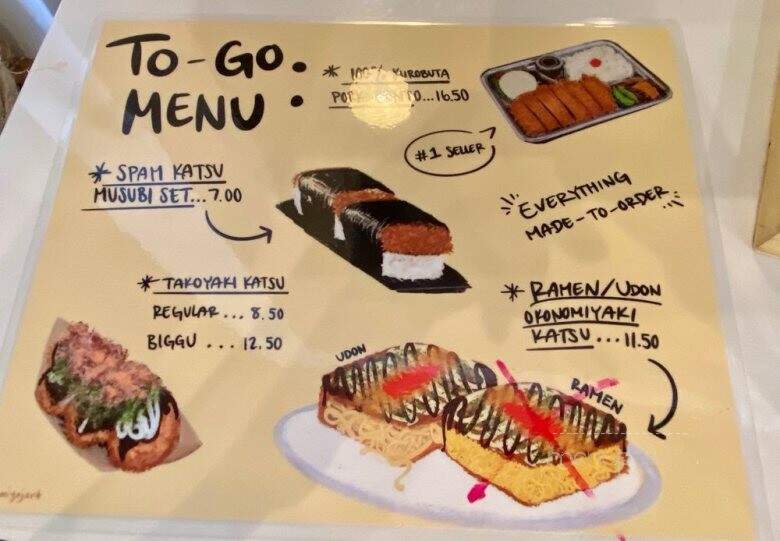 TO-GO
MENU :
* 100% KUROBUTA
PORK BENTO...16.50
#1 SELLER
* SPAM KATSU
MUSUBI SET...7.00
EVERYTHING
MADE-TO-ORDER
* TAKOYAKI KATSU
REGULAR ... 8.50
BIGGU ... 12.50
* RAMEN/UDON
OKONOMIYAKI
KATSU ... 11.50
UDON
RAMEN